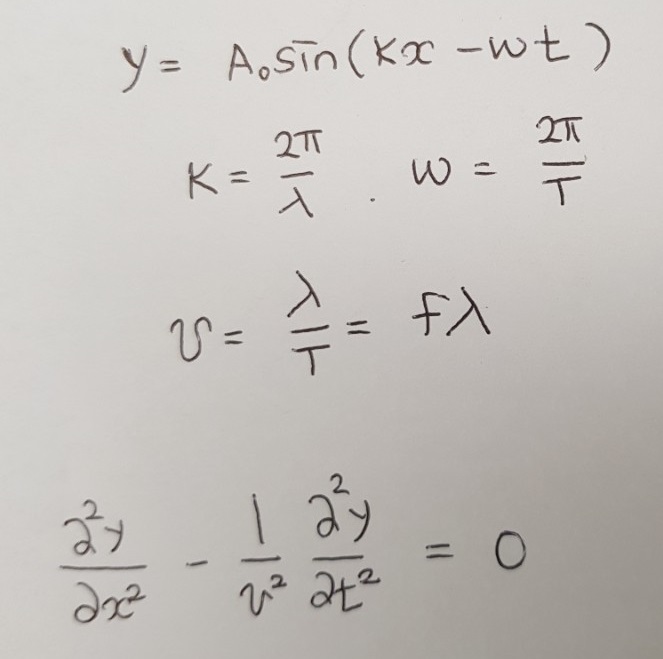 y = A₀sin(kx − wt)
k = 2π/λ . w = 2π/T
v = λ/T = fλ
∂²y/∂x² − 1/v² ∂²y/∂t² = 0